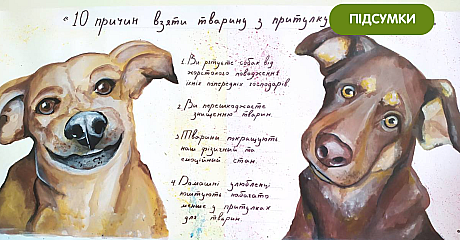 "10 причин взяти тварину з притулку
ПІДСУМКИ
1. Ви рятуєте собак від
жорстокого поводження
їхніх попередніх господарів.
2. Ви перешкоджаєте
знищенню тварин.
3. Тварини покращують
наш фізичний та
емоційний стан.
4. Домашні улюбленці
коштують набагато
менше у притулках
для тварин.